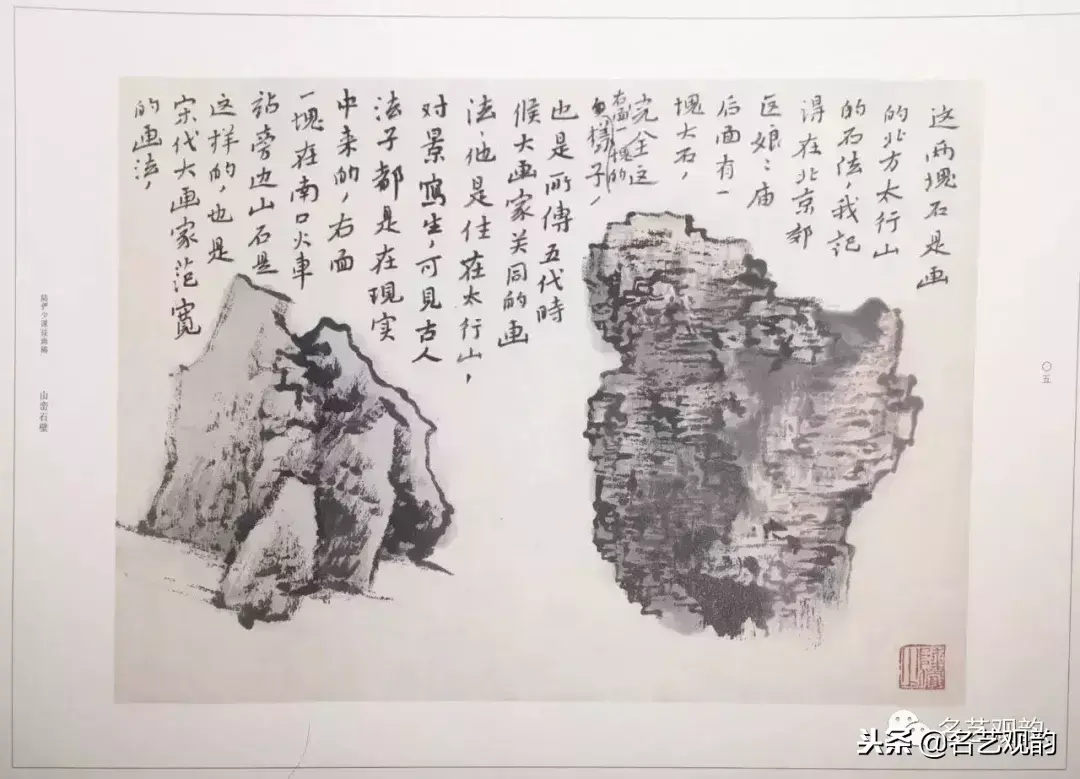 〇五
这两塊石是画
的北方太行山
的石法，我記
得在北京郊
区娘々庙
后面有一
塊大石，
完全这
右面一塊的
樣子，
也是所傳五代時
候大画家关同的画
法，他是住在太行山，
对景寫生，可見古人
法子都是在現实
中来的，右面
一塊在南口火車
站旁边山石是
这样的，也是
宋代大画家范寬
的画法，
陆俨少课徒画稿
山峦石壁
名艺观韵
头条 @名艺观韵